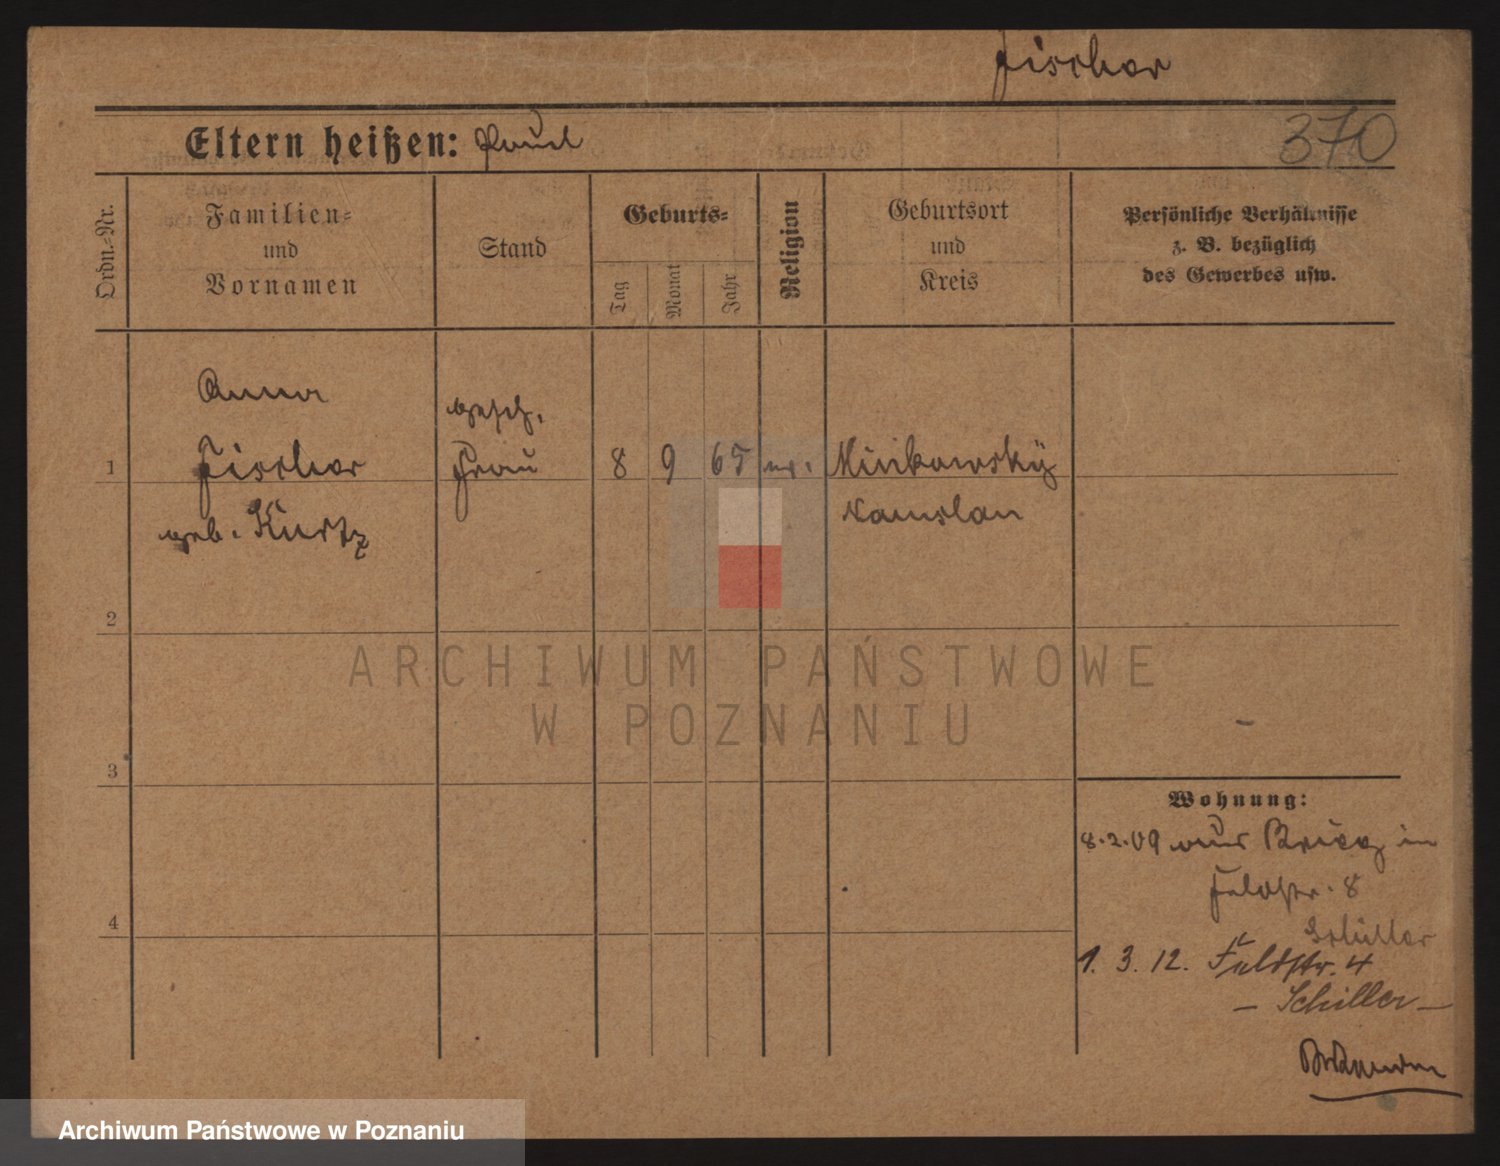 Fischer
Eltern heißen: Paul
370
Ordn.-Nr.
Familien-
und
Vornamen
Stand
Geburts-
Tag
Monat
Jahr
Religion
Geburtsort
und
Kreis
Persönliche Verhältnisse
z. B. bezüglich
des Gewerbes usw.
Anna
gesch.
1 Fischer Frau 8 9 65 ev. Minkowsky
geb. Kurtz Namslau
2
ARCHIWUM PAŃSTWOWE
W POZNANIU
3
Wohnung:
8.2.09 aus Brieg in
Feldstr. 8
Schiller
4
1. 3. 12. Feldstr. 4
– Schiller –
Archiwum Państwowe w Poznaniu